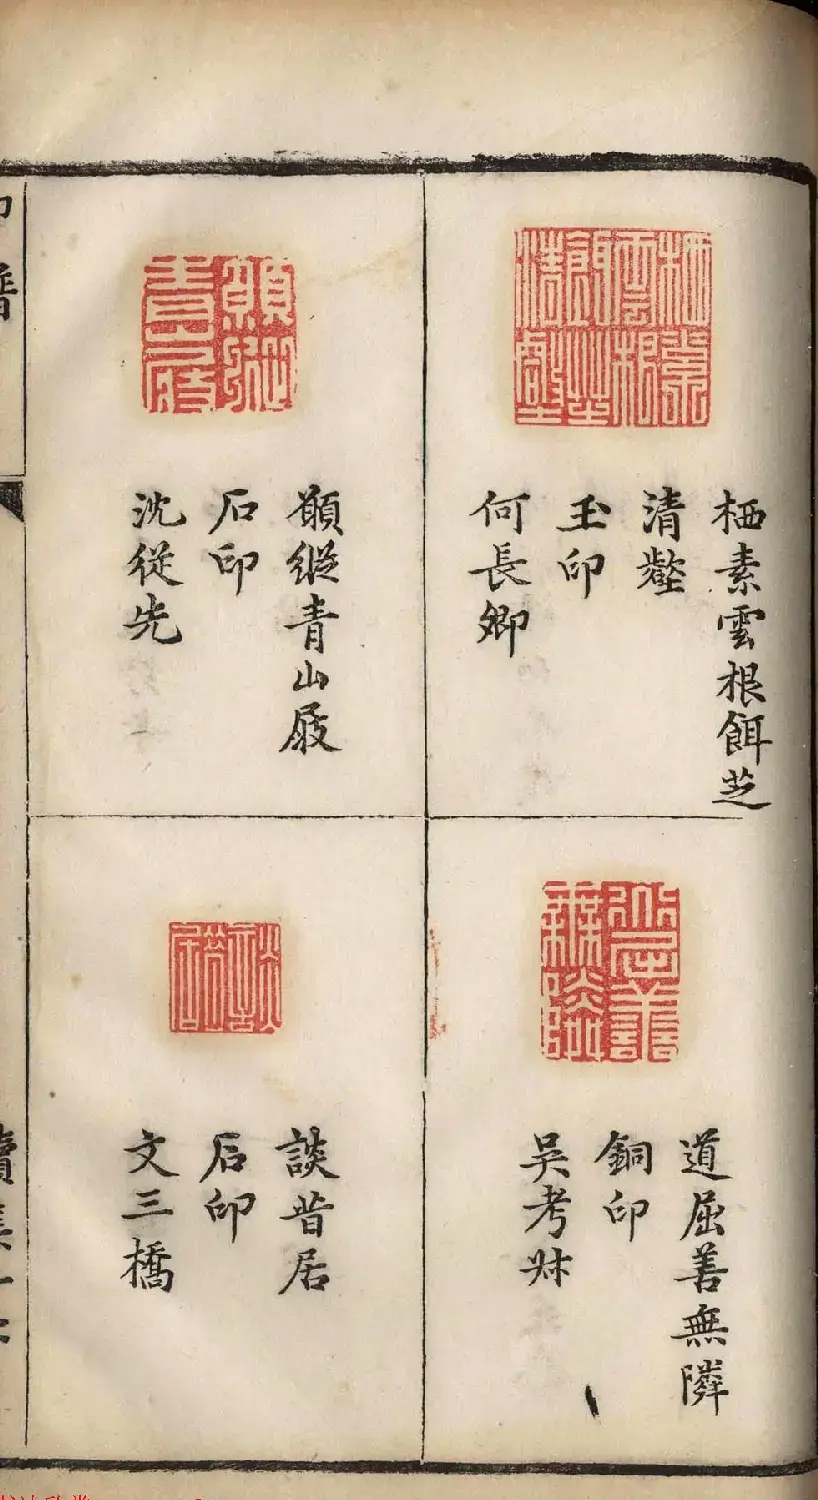 栖素雲根餌芝
清壑
玉印
何長卿
願縱青山屐
石印
沈從先
道屈善無隣
銅印
吳考叔
談昔居
石印
文三橋
印譜